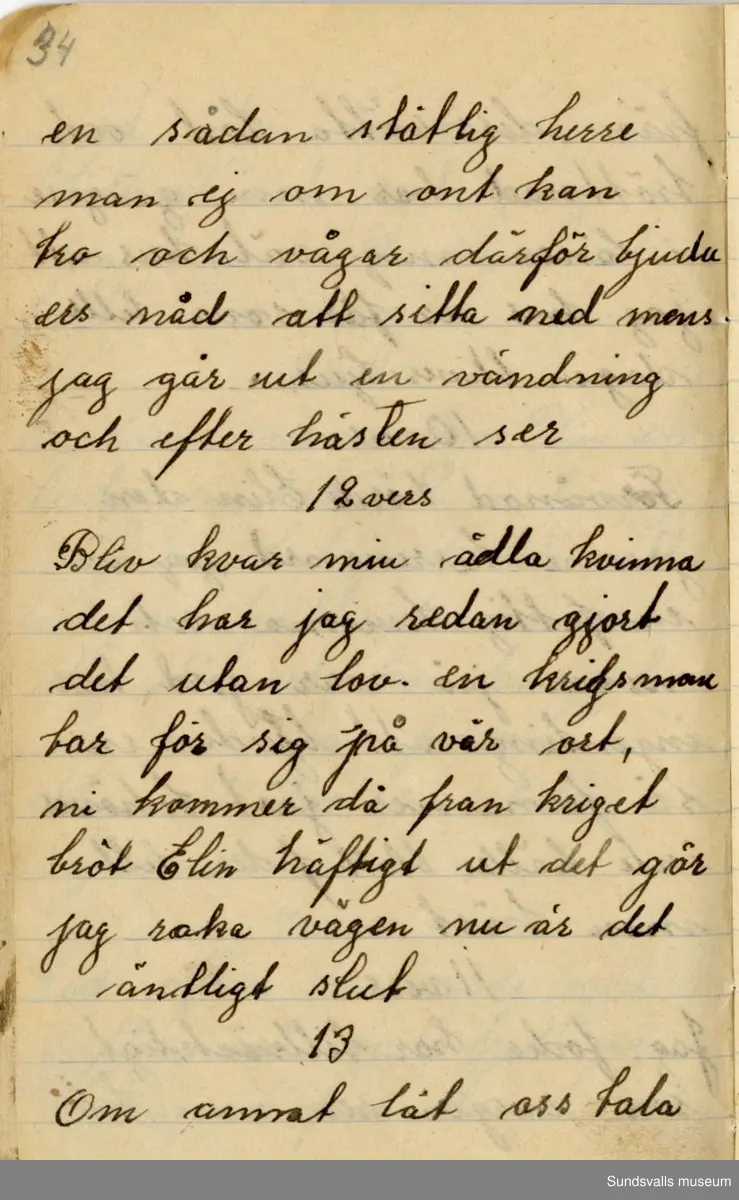 34
en sådan ståtlig herre
man ej om ont kan
tro och vågar därför bjuda
ers nåd att sitta ned mens.
jag går ut en vändning
och efter hästen ser
12 vers
Bliv kvar min ädla kvinna
det har jag redan gjort
det utan lov. en krigsman
tar för sig på vår ort,
ni kommer då fran kriget
bröt Elin häftigt ut det gör
jag raka vägen nu är det
äntligt slut
13
Om annat låt oss tala
Sundsvalls museum